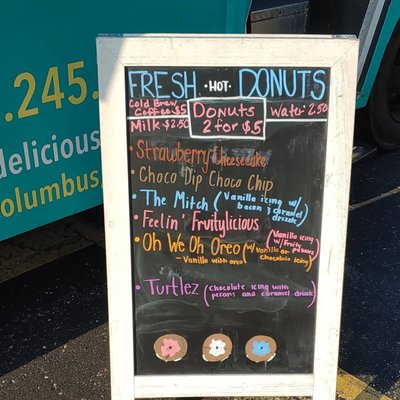 .245.
delicious
olumbus,
FRESH • HOT • DONUTS
Cold Brew
Coffee $5
Milk $2.50
Donuts
2 for $5
Water: 2.50
• Strawberry Cheesecake
• Choco Dip Choco Chip
• The Mitch (Vanilla icing w/
bacon & caramel
drizzle)
• Feelin' Fruitylicious (Vanilla icing
w/ fruity
pebbles)
• Oh We Oh Oreo (w/ vanilla or
chocolate icing)
- Vanilla with oreo
• Turtlez (Chocolate icing with
pecans and caramel drizzle)